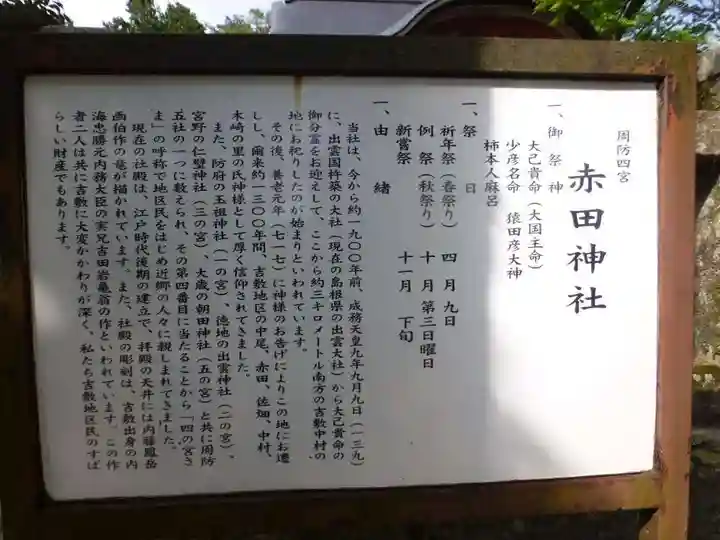 周防四宮
赤田神社
一、御祭神
大己貴命(大国主命)
少彦名命 猿田彦大神
柿本人麻呂
一、祭日
祈年祭(春祭り) 四月九日
例祭(秋祭り) 十月第三日曜日
新嘗祭 十一月下旬
一、由緒
当社は、今から約一九〇〇年前、成務天皇九年九月九日(一三九)
に、出雲国杵築の大社(現在の島根県の出雲大社)から大己貴命の
御分霊をお迎えして、ここから約三キロメートル南方の吉敷中村の
地にお祀りしたのが始まりといわれています。
その後、養老元年(七一七)に神様のお告げによりこの地にお遷
しし、爾来約一三〇〇年間、吉敷地区の中尾、赤田、佐畑、中村、
木崎の里の氏神様として厚く信仰されてきました。
また、防府の玉祖神社(一の宮)、徳地の出雲神社(二の宮)、
宮野の仁壁神社(三の宮)、大歳の朝田神社(五の宮)と共に周防
五社の一つに数えられ、その第四番目に当たることから「四の宮さ
ま」の呼称で地区民をはじめ近郷の人々に親しまれてきました。
現在の社殿は、江戸時代後期の建立で、拝殿の天井には内藤鳳岳
画伯作の竜が描かれています。また、社殿の彫刻は、吉敷出身の内
海忠勝元内務大臣の実兄吉田岩亀翁の作といわれています。この作
者二人は共に吉敷に大変かかわりが深く、私たち吉敷地区民のすば
らしい財産でもあります。